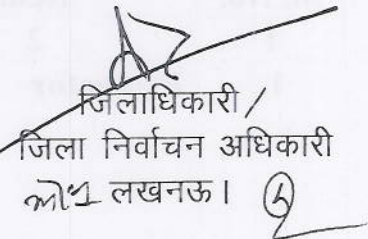 जिलाधिकारी /
जिला निर्वाचन अधिकारी
लखनऊ।